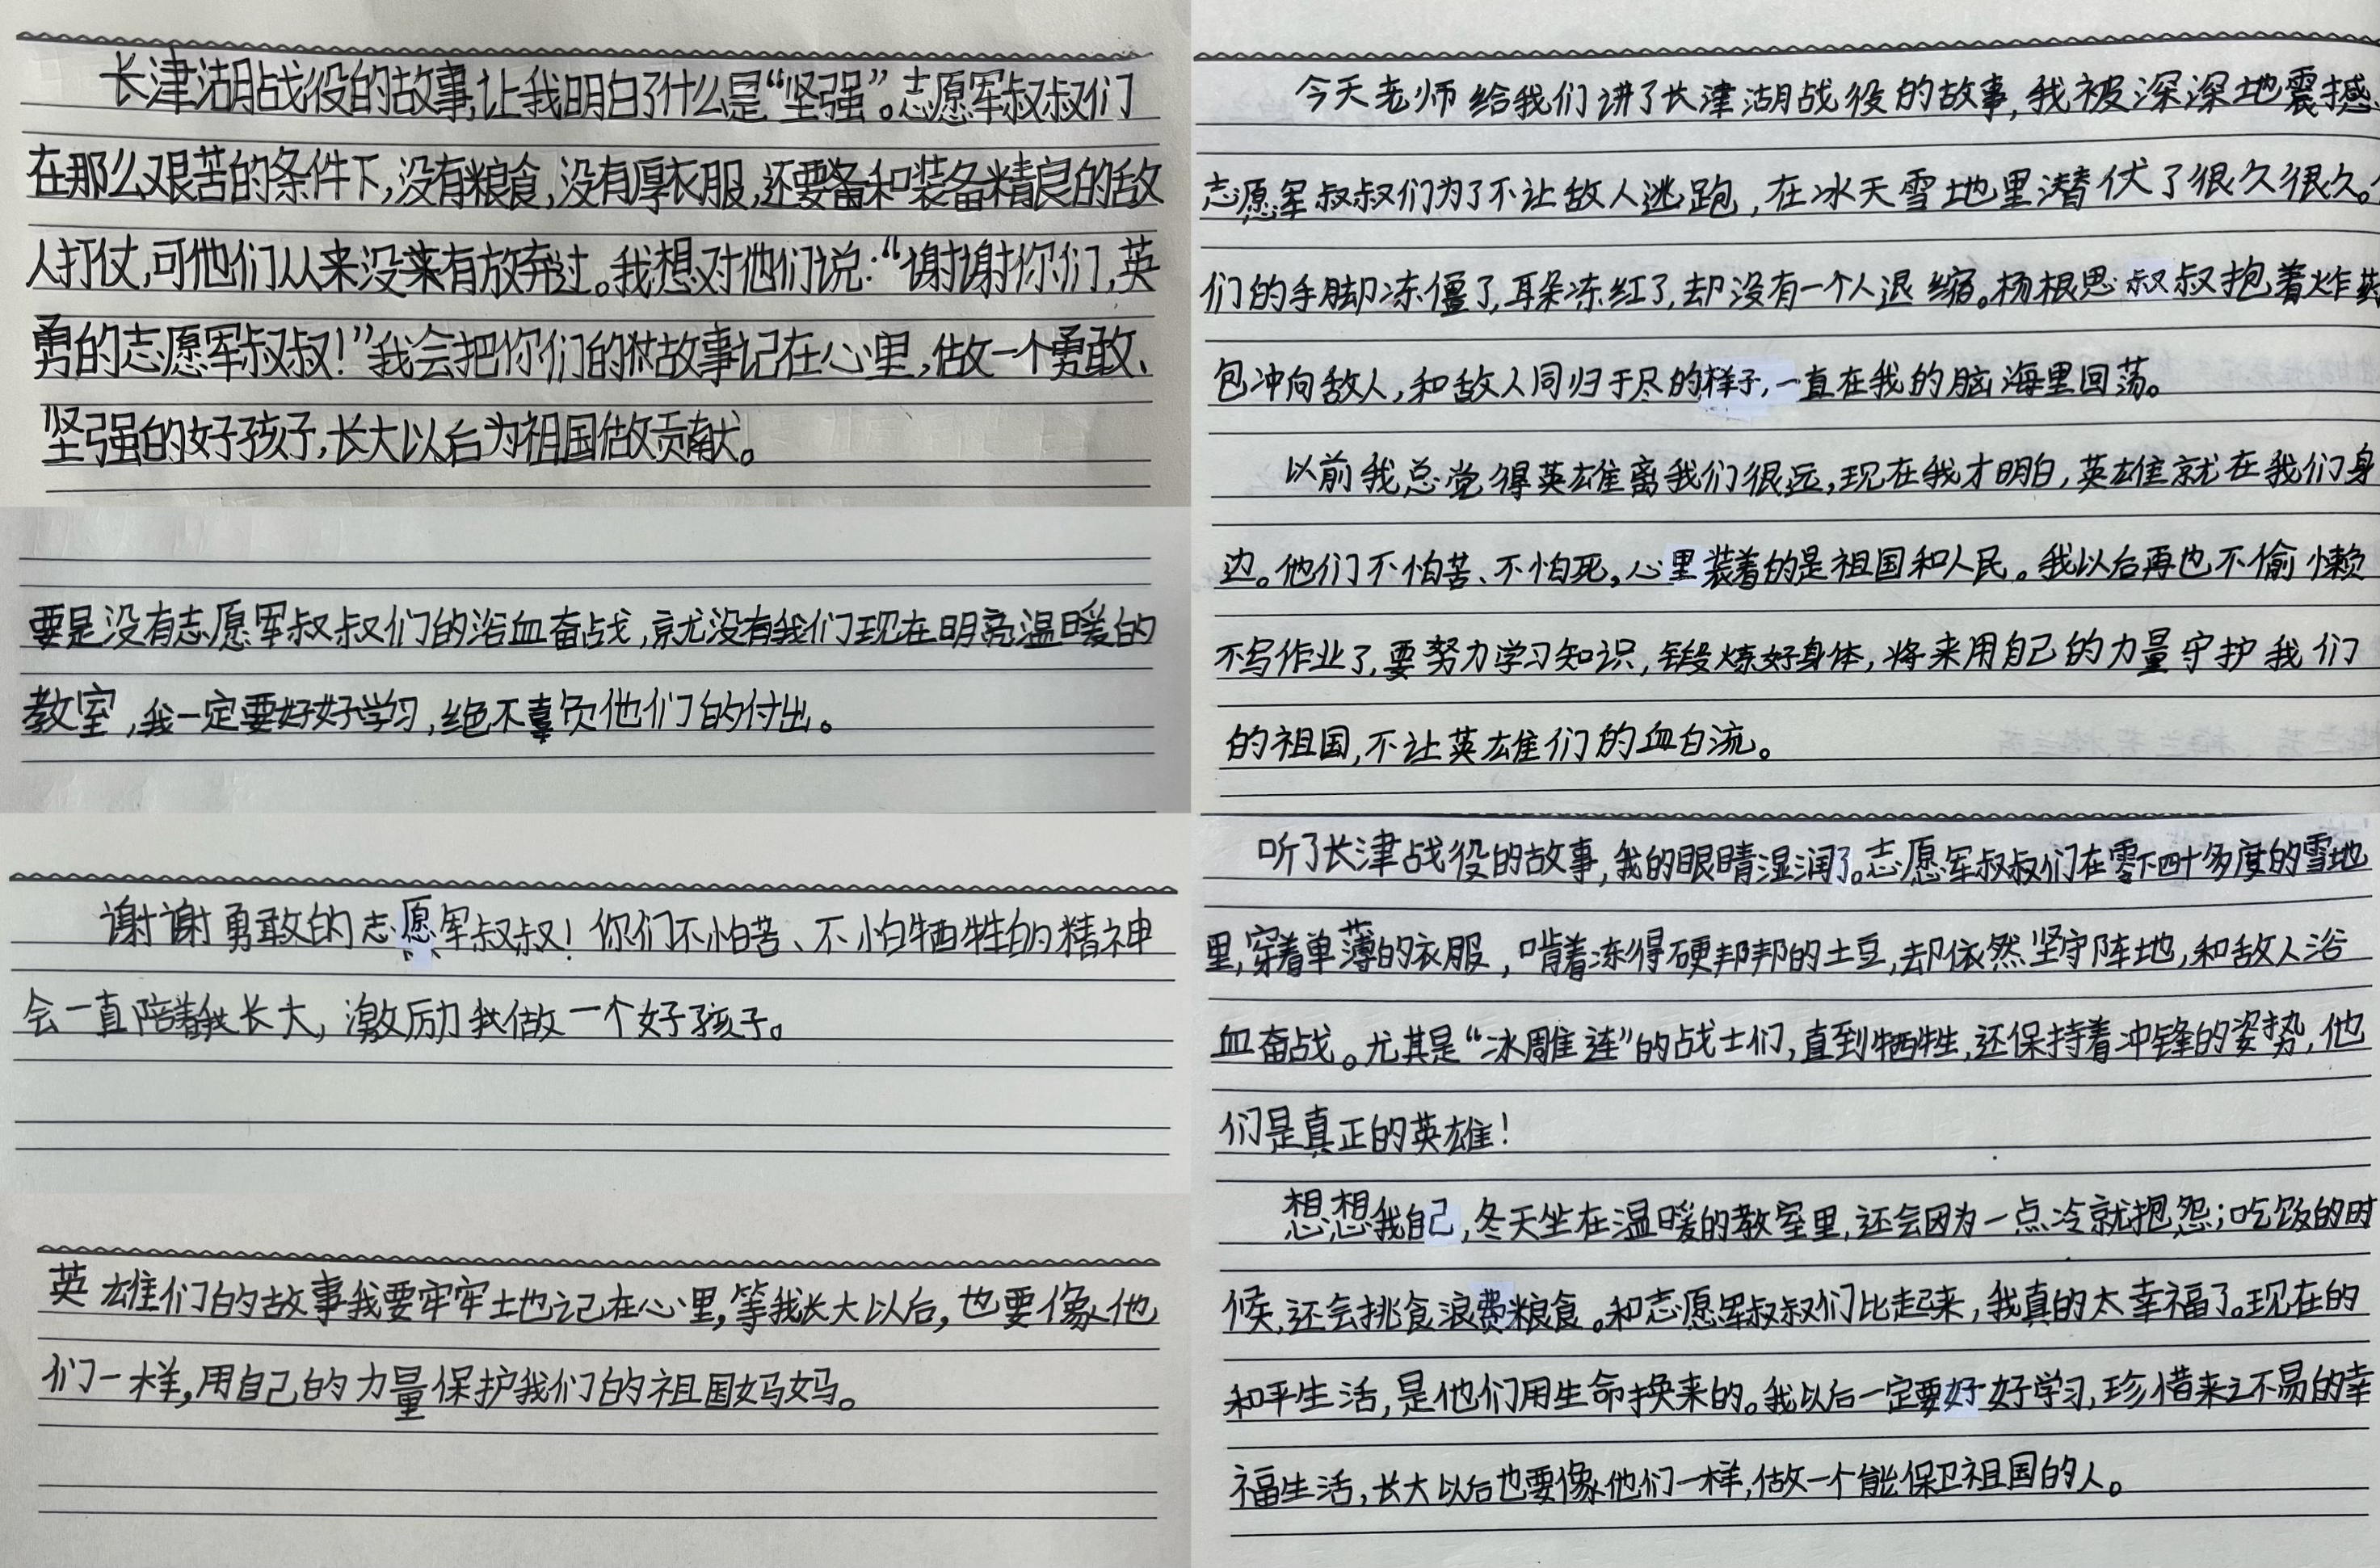 长津湖战役的故事,让我明白了什么是“坚强”。志愿军叔叔们
在那么艰苦的条件下,没有粮食,没有厚衣服,还要备和装备精良的敌
人打仗,可他们从来没来有放弃过。我想对他们说:“谢谢你们,英
勇的志愿军叔叔!”我会把你们的故事记在心里,做一个勇敢、
坚强的好孩子,长大以后为祖国做贡献。
要是没有志愿军叔叔们的浴血奋战,就没有我们现在明亮温暖的
教室,我一定要好好学习,绝不辜负他们的付出。
谢谢勇敢的志愿军叔叔!你们不怕苦、不怕牺牲的精神
会一直陪着我长大,激励我做一个好孩子。
英雄们的故事我要牢牢地记在心里,等我长大以后,也要像他
们一样,用自己的力量保护我们的祖国妈妈。
今天老师给我们讲了长津湖战役的故事,我被深深地震撼
志愿军叔叔们为了不让敌人逃跑,在冰天雪地里潜伏了很久很久。
们的手脚冻僵了,耳朵冻红了,却没有一个人退缩。杨根思叔叔抱着炸药
包冲向敌人,和敌人同归于尽的样子,一直在我的脑海里回荡。
以前我总觉得英雄离我们很远,现在我才明白,英雄就在我们身
边。他们不怕苦、不怕死,心里装着的是祖国和人民。我以后再也不偷懒
不写作业了,要努力学习知识,锻炼好身体,将来用自己的力量守护我们
的祖国,不让英雄们的血白流。
听了长津战役的故事,我的眼睛湿润了。志愿军叔叔们在零下四十多度的雪地
里,穿着单薄的衣服,啃着冻得硬邦邦的土豆,却依然坚守阵地,和敌人浴
血奋战。尤其是“冰雕连”的战士们,直到牺牲,还保持着冲锋的姿势,他
们是真正的英雄!
想想我自己,冬天坐在温暖的教室里,还会因为一点冷就抱怨;吃饭的时
候,还会挑食浪费粮食。和志愿军叔叔们比起来,我真的太幸福了。现在的
和平生活,是他们用生命换来的。我以后一定要好好学习,珍惜来之不易的幸
福生活,长大以后也要像他们一样,做一个能保卫祖国的人。